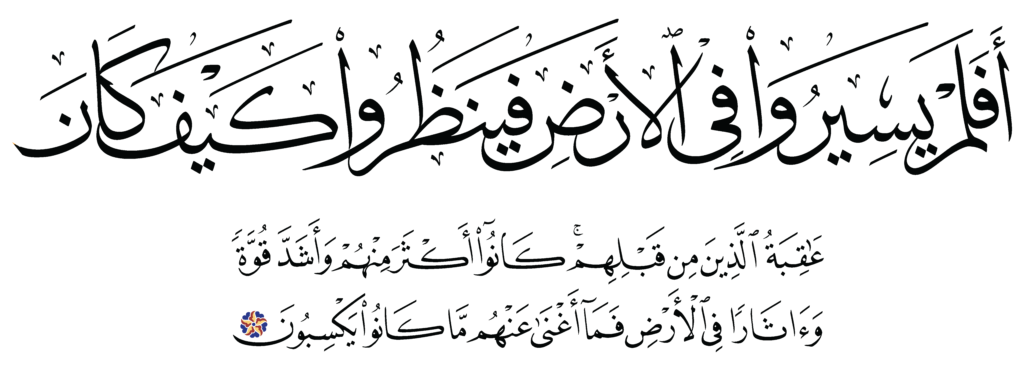 أَفَلَمْ يَسِيرُوا۟ فِى ٱلْأَرْضِ فَيَنظُرُوا۟ كَيْفَ كَانَ
عَٰقِبَةُ ٱلَّذِينَ مِن قَبْلِهِمْ ۚ كَانُوٓا۟ أَكْثَرَ مِنْهُمْ وَأَشَدَّ قُوَّةً
وَءَاثَارًا فِى ٱلْأَرْضِ فَمَآ أَغْنَىٰ عَنْهُم مَّا كَانُوا۟ يَكْسِبُونَ